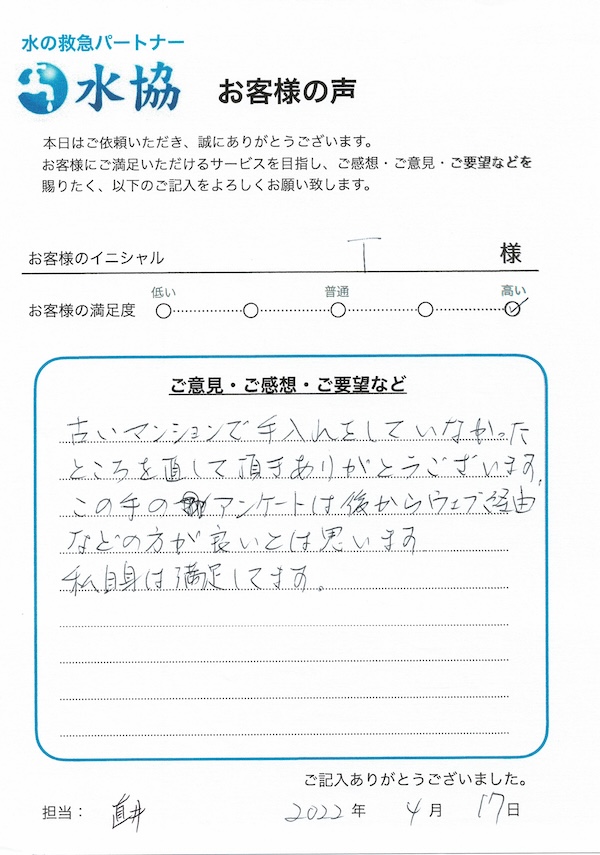 水の救急パートナー
水協 お客様の声
本日はご依頼いただき、誠にありがとうございます。
お客様にご満足いただけるサービスを目指し、ご感想・ご意見・ご要望などを
賜りたく、以下のご記入をよろしくお願い致します。
お客様のイニシャル T 様
低い 普通 高い
お客様の満足度
ご意見・ご感想・ご要望など
古いマンションで手入れをしていなかった
ところを直して頂きありがとうございます。
この手のアンケートは後からウェブ経由
などの方が良いとは思います
私自身は満足してます。
ご記入ありがとうございました。
担当： 直井 2022年 4月 17日